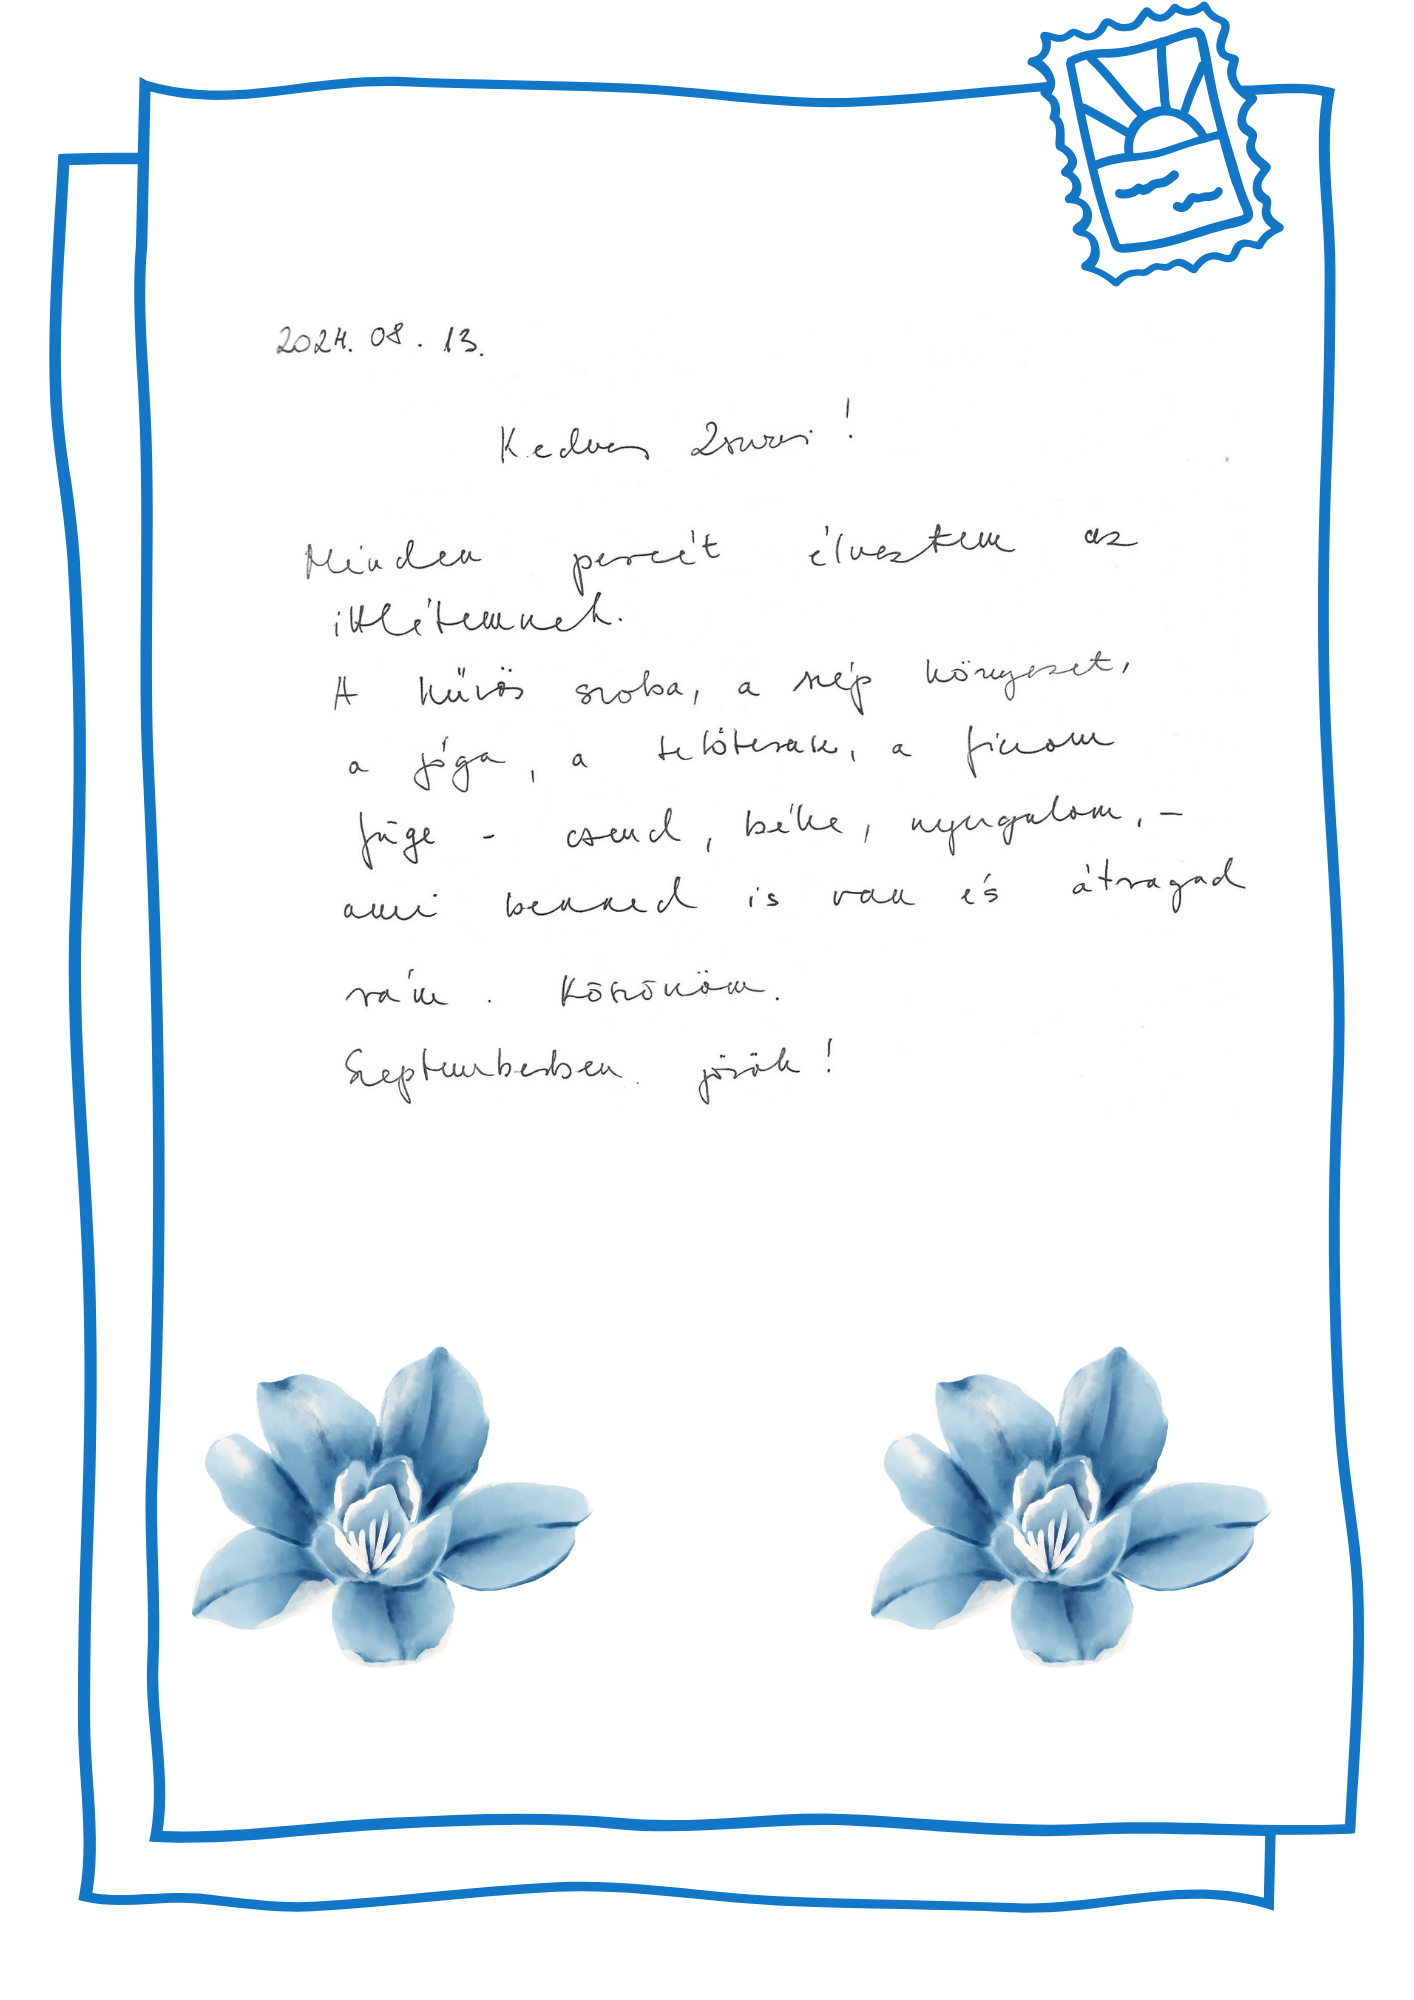 2024. 08. 13.
Kedves Zsuzsi!
Minden percét élveztem az
ittlétemnek.
A hűvös szoba, a szép környezet,
a jóga, a tetőterasz, a finom
füge - csend, béke, nyugalom, -
ami benned is van és átragad
rám. Köszönöm.
Szeptemberben jövök!